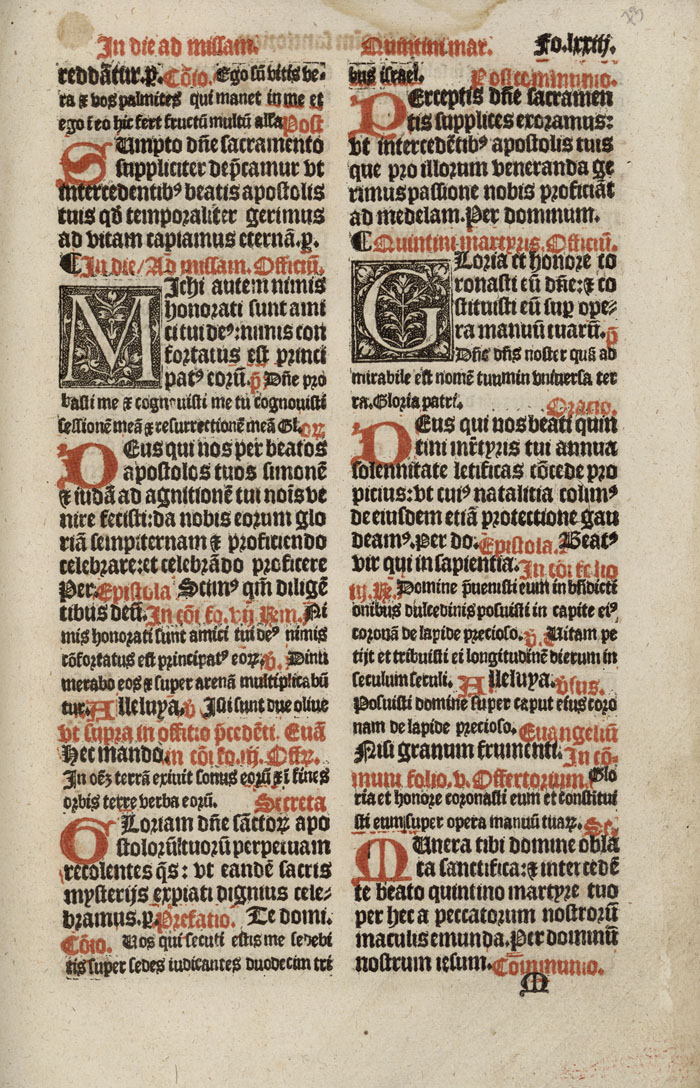 In die ad missam.
Quintini mar.
Fo.lxxiij.
reddātur.ꝑ. Cōio. Ego sū vitis ve-
ra ⁊ vos palmites qui manet in me et
ego ī eo hic fert fructū multū alľa Post
SUmpto dn̄e sacramento
suppliciter dep̄camur vt
intercedentibꝰ beatis apostolis
tuis qd̄ temporaliter gerimus
ad vitam capiamus eternā.ꝑ.
¶ In die/Ad missam. Officiū.
MIchi autem nimis
honorati sunt ami
ci tui deꝰ: nimis con
fortatus est princi
patꝰ eorū. ꝓ Dn̄e pro
basti me ⁊ cognouisti me tu cognouisti
sessionē meā ⁊ resurrectionē meā Gl. Oꝝ
DEus qui nos per beatos
apostolos tuos simonē
⁊ iudā ad agnitionē tui nois̄ ve
nire fecisti: da nobis eorum glo
riā sempiternam ⁊ proficiendo
celebrare: et celebrādo proficere
Per. Epistola Scimꝰ qm̄ diligē
tibus deū. In cōi fo. vij Rem. Ni
mis honorati sunt amici tui deꝰ nimis
cōfortatus est principatꝰ eoꝝ. v. Dinu
merabo eos ⁊ super arenā multiplicabū
tur. Alleluya. v. Isti sunt due oliue
vt supra in offitio p̄cedēti. Euā
Hec mando. in cōi fo. iij. Offꝝ.
In oēȝ terrā exiuit sonus eorū ⁊ ī fines
orbis terre verba eorū. Secreta
GLoriam dn̄e sāctoꝝ apo
stoloꝛū tuorū perpetuam
recolentes q̄s: vt eandē sacris
mysterijs expiati dignius cele-
bramus.ꝑ. Prefatio. Te domi.
Cōio. Uos qui secuti estis me sedebi
tis super sedes iudicantes duodecim tri
bus israel. Postcommunio.
PErceptis dn̄e sacramen
tis supplices exoramus:
vt intercedētibꝰ apostolis tuis
que pro illorum veneranda ge
rimus passione nobis proficiāt
ad medelam. Per dominum.
¶ Quintini martyris. Officiū.
GLoria et honore co
ronasti eū dn̄e: ⁊ co
stituisti eū suꝑ ope-
ra manuū tuarū. ꝓ
Dn̄e dn̄s noster quā ad
mirabile est nomē tuum in vniuersa ter
ra. Gloria patri. Oracio.
DEus qui nos beati quin
tini mr̄tyris tui annua
solennitate letificas cōcede pro
picius: vt cuiꝰ natalitia colimꝰ
de eiusdem etiā protectione gau
deamꝰ. Per do. Epistola. Beatꝰ
vir qui in sapientia. In cōi fo lio
iij. Re. Domine p̄uenisti eum in bn̄dicti
onibus dulcedinis posuisti in capite eiꝰ
coronā de lapide precioso. v. Uitam pe
tijt et tribuisti ei longitudinē dierum in
seculum seculi. Alleluya. v̄sus.
Posuisti domine super caput eius coro
nam de lapide precioso. Euangeliū
Nisi granum frumenti. In cō-
muni folio. v. Offertorium. Glo
ria et honore coronasti eum et constitui
sti eum super opera manuū tuaꝝ. Se.
MUnera tibi domine obla
ta sanctifica: ⁊ intercedē
te beato quintino martyre tuo
per hec a peccatorum nostrorū
maculis emunda. Per dominū
nostrum iesum. Cōmmunio.
M